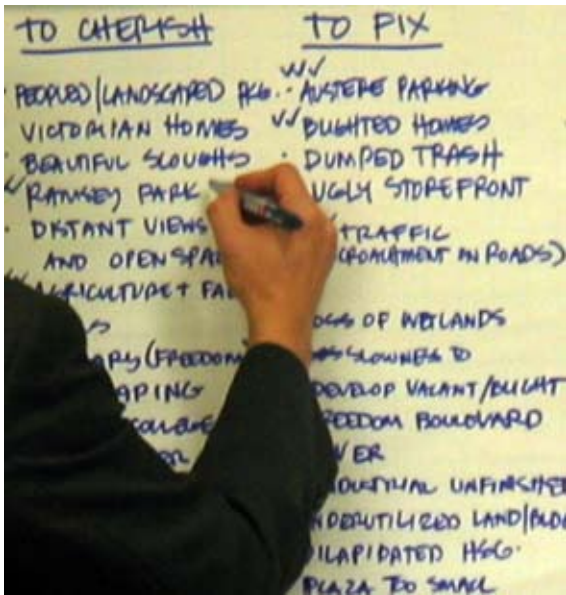 TO CHERISH
PEOPLED/LANDSCAPED
VICTORIAN HOMES
BEAUTIFUL SLOUGHS
RAMSEY PARK
DISTANT VIEWS
AND OPEN
AGRICULTURE +
(FREEDOM)
TO FIX
AUSTERE PARKING
BLIGHTED HOMES
DUMPED TRASH
UGLY STOREFRONT
TRAFFIC
ON ROADS)
OF WETLANDS
SLOWNESS TO
DEVELOP VACANT/BLIGHT
FREEDOM BOULEVARD
UNFINISHED
LAND/
DILAPIDATED HSG.
PLAZA TOO SMALL